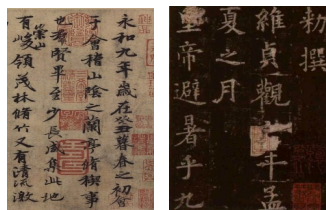 永和九年歲在癸丑暮春之初會
于會稽山陰之蘭亭脩稧事
也群賢畢至少長咸集此地
有崇山峻領茂林脩竹又有清流激
勅撰
維貞觀年孟
夏之月
皇帝避暑乎九